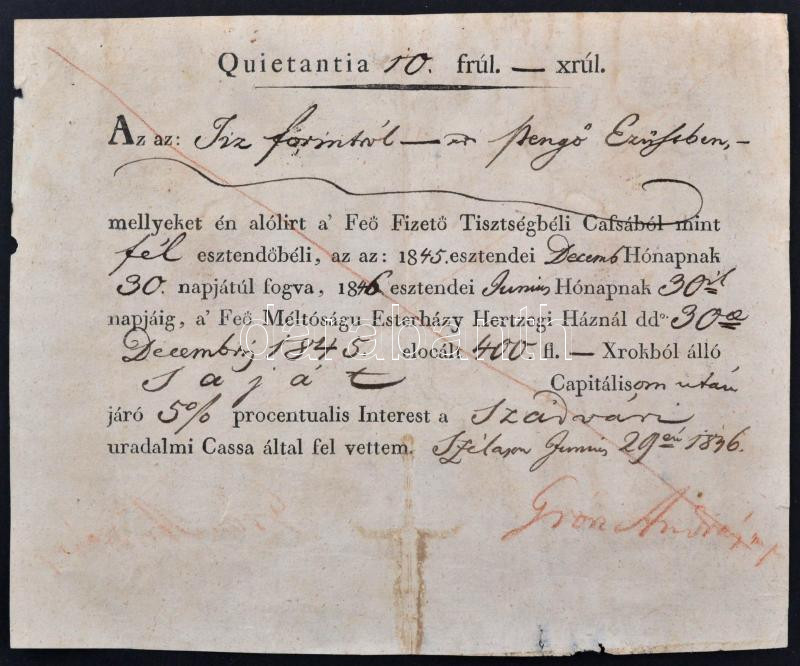 Quietantia 10. frúl. — xrúl.
Az az: Tiz forintról — xr pengő Ezüstben, –
mellyeket én alólirt a' Feő Fizető Tisztségbéli Cassából mint
fél esztendőbéli, az az: 1845. esztendei Decemb Hónapnak
30. napjátúl fogva, 1846 esztendei Junius Hónapnak 30ik
napjáig, a' Feő Méltóságu Esterházy Hertzegi Háznál ddo. 30ae
Decembris 1845 elocált 400. fl. — Xrokból álló
saját Capitálisom után
járó 5% procentualis Interest a Szádvári
uradalmi Cassa által fel vettem. Junius 29én 1846.
darabanth